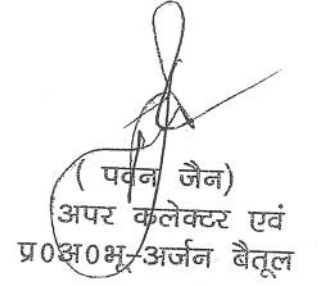 ( पवन जैन)
अपर कलेक्टर एवं
प्र0अ0भू-अर्जन बैतूल